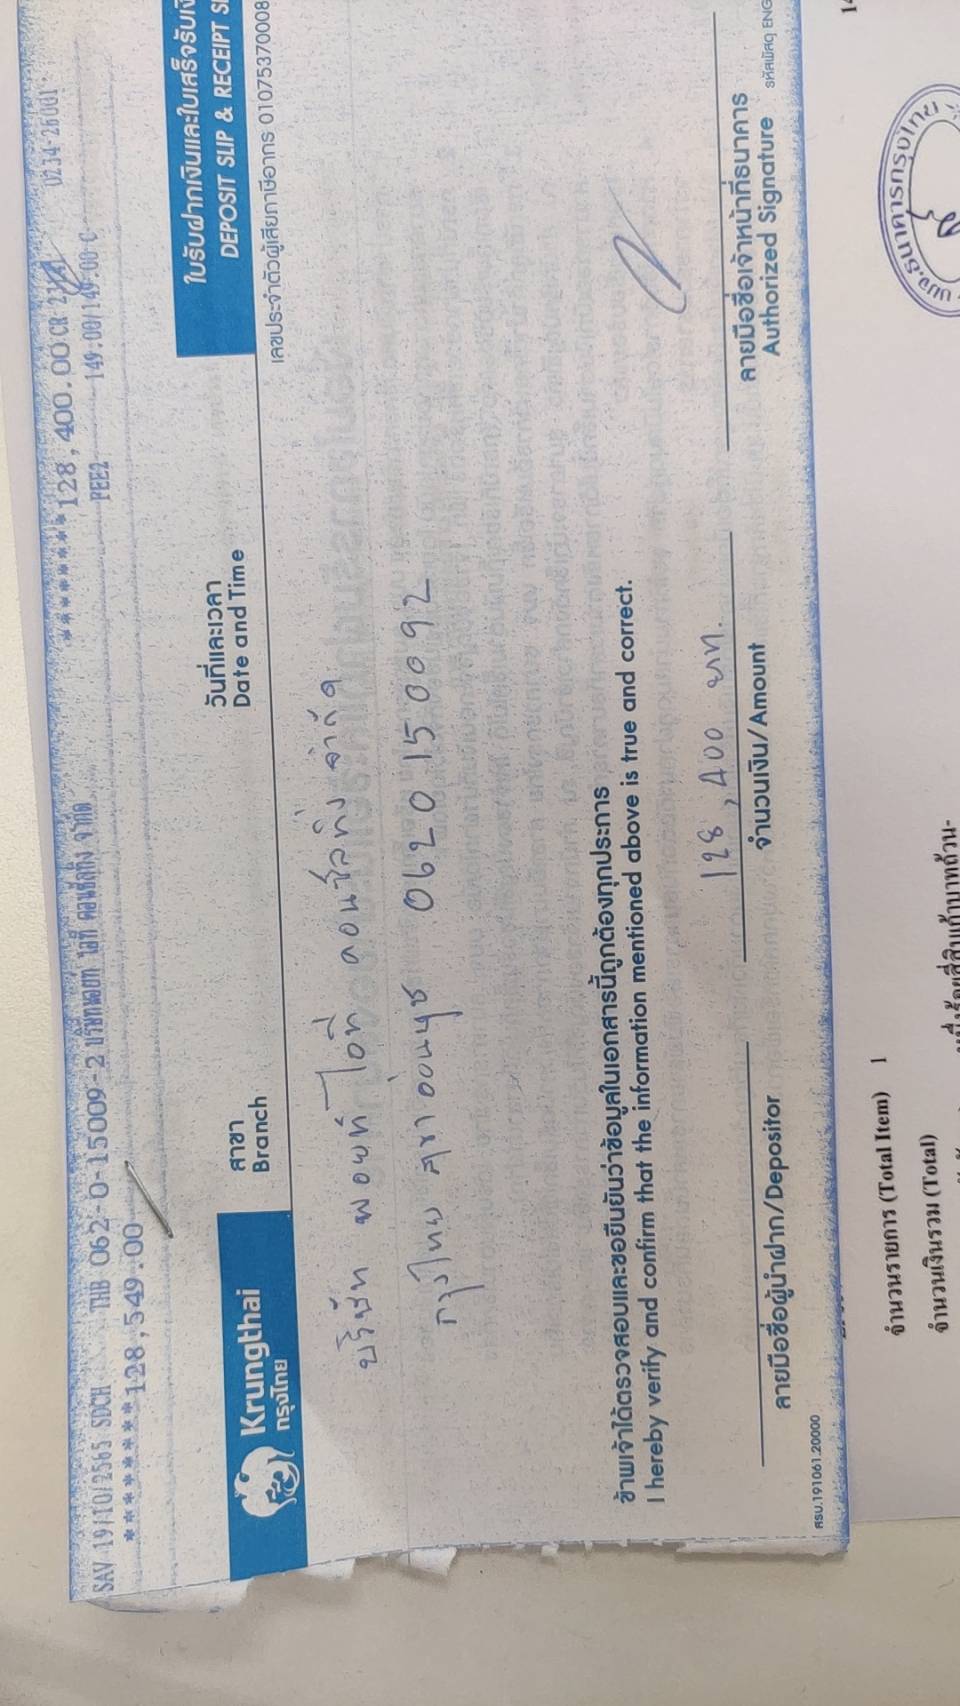 SAV 19/10/2565 SDCH THB 062-0-15009-2 บริษัทพอยท์ ไอที คอนซัลทิ่ง จำกัด ********128,400.00CR 0234-26001
********128,549.00 FEE2 149.00/149.00 C
Krungthai
กรุงไทย
สาขา
Branch
วันที่และเวลา
Date and Time
ใบรับฝากเงินและใบเสร็จรับเงิ
DEPOSIT SLIP & RECEIPT S
เลขประจำตัวผู้เสียภาษีอากร 01075370008
บริษัท พอยท์ ไอที คอนซัลทิ่ง จำกัด
กรุงไทย สาขา อ่อนนุช 0620150092
ข้าพเจ้าได้ตรวจสอบและขอยืนยันว่าข้อมูลในเอกสารนี้ถูกต้องทุกประการ
I hereby verify and confirm that the information mentioned above is true and correct.
128,400 บาท.
ลายมือชื่อผู้นำฝาก/Depositor
จำนวนเงิน/Amount
ลายมือชื่อเจ้าหน้าที่ธนาคาร
Authorized Signature
รหัสพัสดุ ENG
สรบ.191061.20000
จำนวนรายการ (Total Item) 1
จำนวนเงินรวม (Total)
หนึ่งร้อยสี่สิบเก้าบาทถ้วน-
บมจ.ธนาคารกรุงไทย